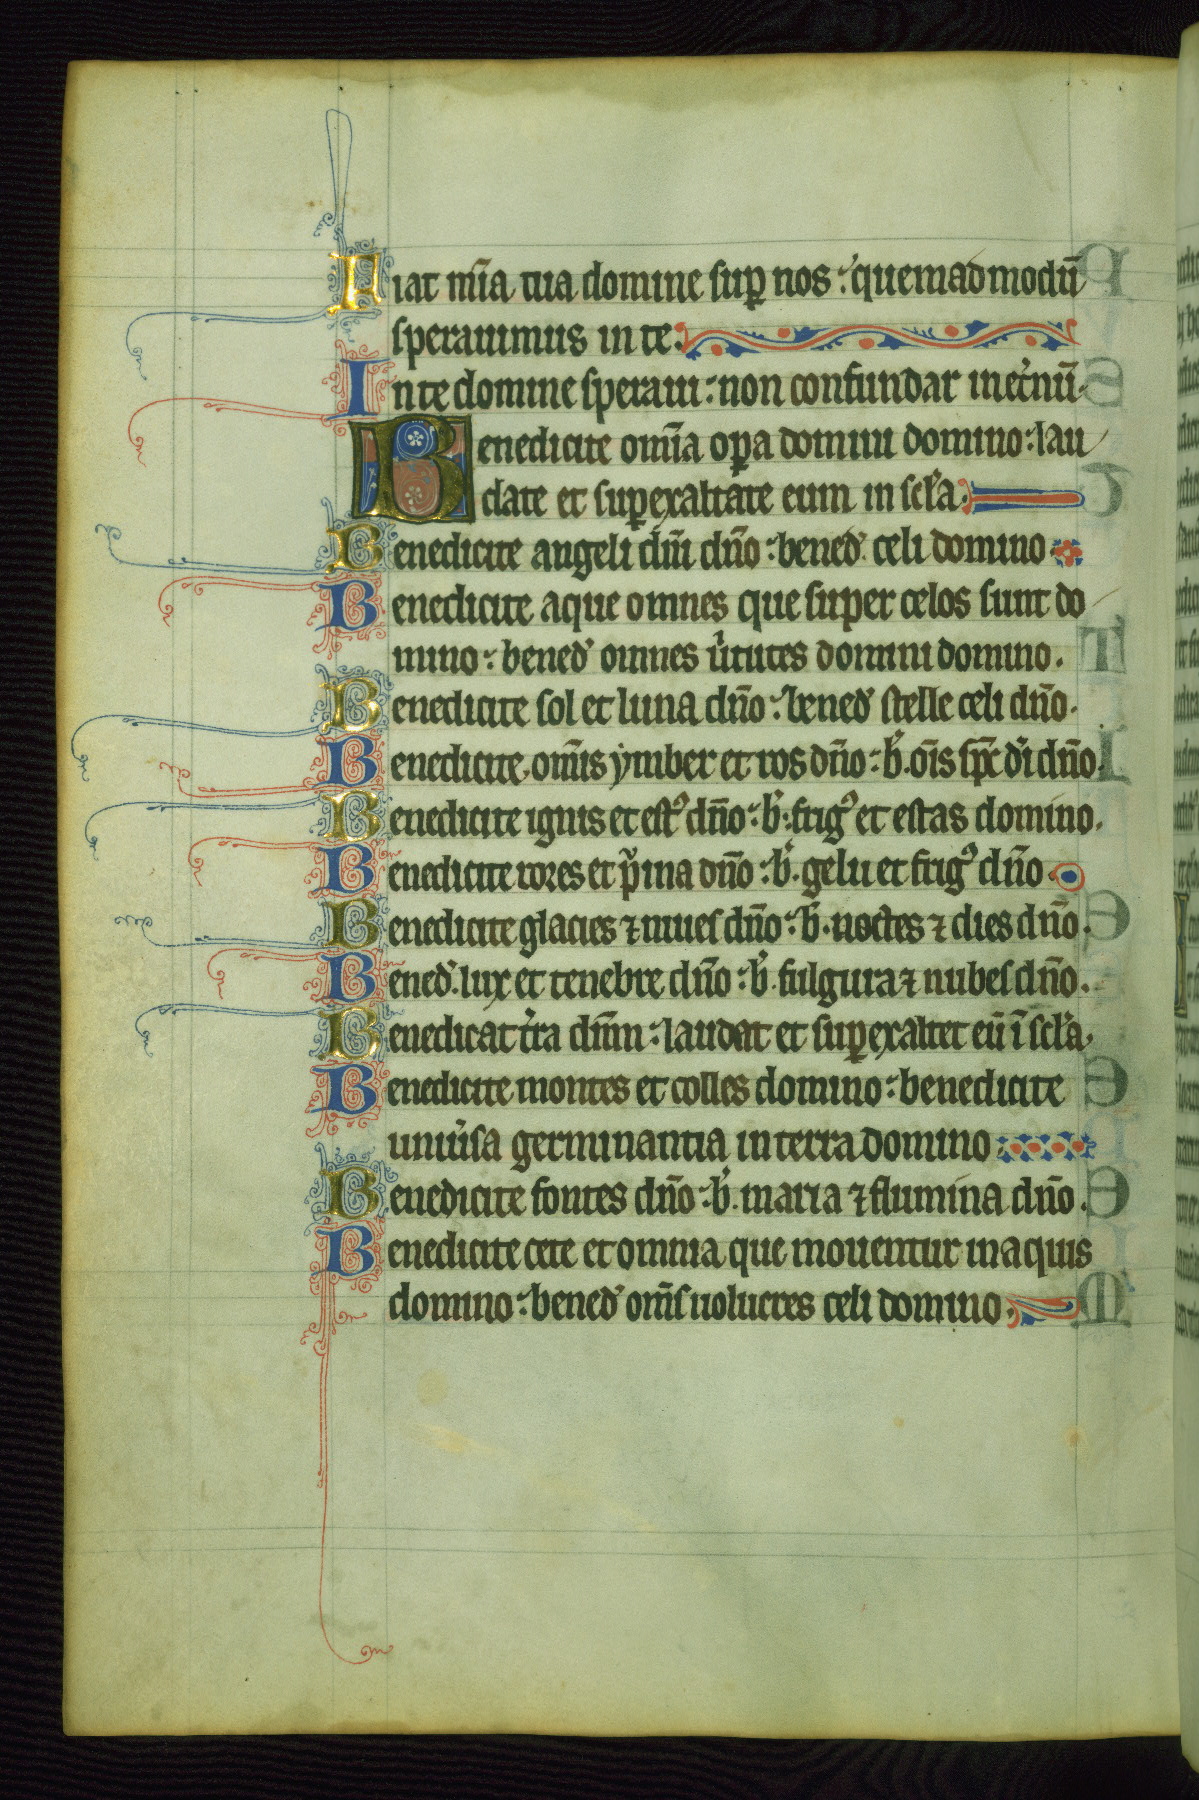 Fiat mīa tua domine suꝑ nos : quemadmodū
sperauimus in te.
In te domine speraui : non confundar in et̾nū.
Benedicite om̄ia oꝑa domini domino : lau
date et suꝑexaltate eum in scl̾a.
Benedicite angeli dn̄i dn̄o : bened̾. celi domino.
Benedicite aque omnes que super celos sunt do
mino : bened̾ omnes u̾tutes domini domino.
Benedicite sol et luna dn̄o : bened̾ stelle celi dn̄o.
Benedicite, om̄is ymber et ros dn̄o : b̾. oīs sp̄c d̾i dn̄o.
Benedicite ignis et estꝰ dn̄o : b̾. frigꝰ et estas domino.
Benedicite rores et p̾ina dn̄o : b̾. gelu et frigꝰ dn̄o.
Benedicite glacies ⁊ niues dn̄o : b̾. noctes ⁊ dies dn̄o.
Bened̾. lux et tenebre dn̄o : b̾. fulgura ⁊ nubes dn̄o.
Benedicat t̾ra dn̄m : laudat et suꝑexaltet eū ī scl̾a.
Benedicite montes et colles domino : benedicite
uniu̾sa germinantia in terra domino
Benedicite fontes dn̄o : b̾. maria ⁊ flumina dn̄o.
Benedicite cete et omnia que mouentur in aquis
domino : bened̾ om̄s uolucres celi domino.